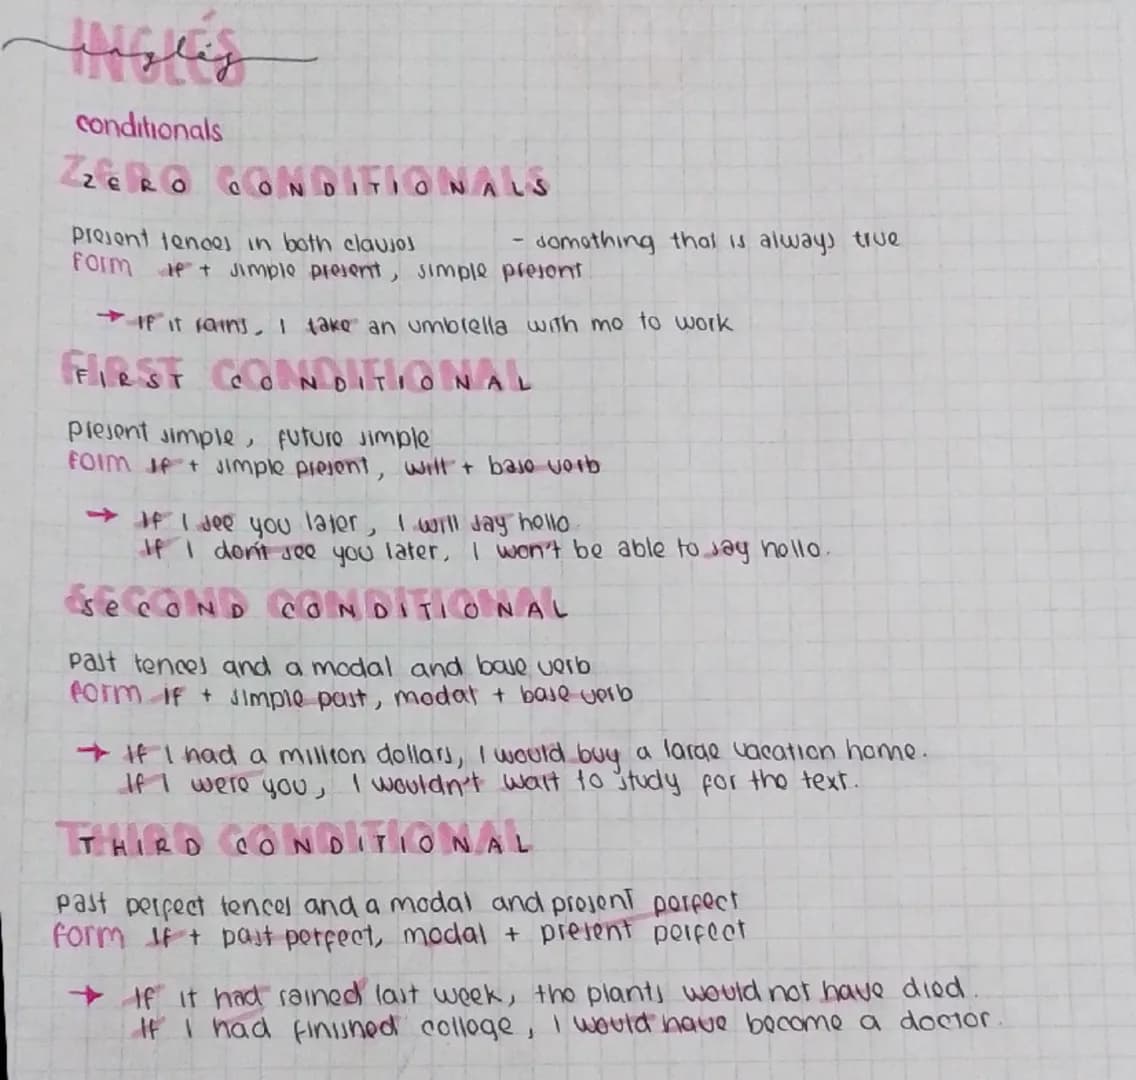 INGLÉS
inglés
conditionals
ZERO CONDITIONALS
present tences in both clauses - something that is always true
Form If + simple present, simple present
→ If it rains, I take an umbrella with me to work
FIRST CONDITIONAL
present simple, future simple
Form If + simple present, will + base verb
→ If I see you later, I will say hello.
If I don't see you later, I won't be able to say hello.
SECOND CONDITIONAL
past tences and a modal and base verb
form if + simple past, modal + base verb
→ If I had a million dollars, I would buy a large vacation home.
If I were you, I wouldn't wait to study for the text.
THIRD CONDITIONAL
past perfect tences and a modal and present perfect
form If + past perfect, modal + present perfect
→ If it had rained last week, the plants would not have died.
If I had finished college, I would have become a doctor.